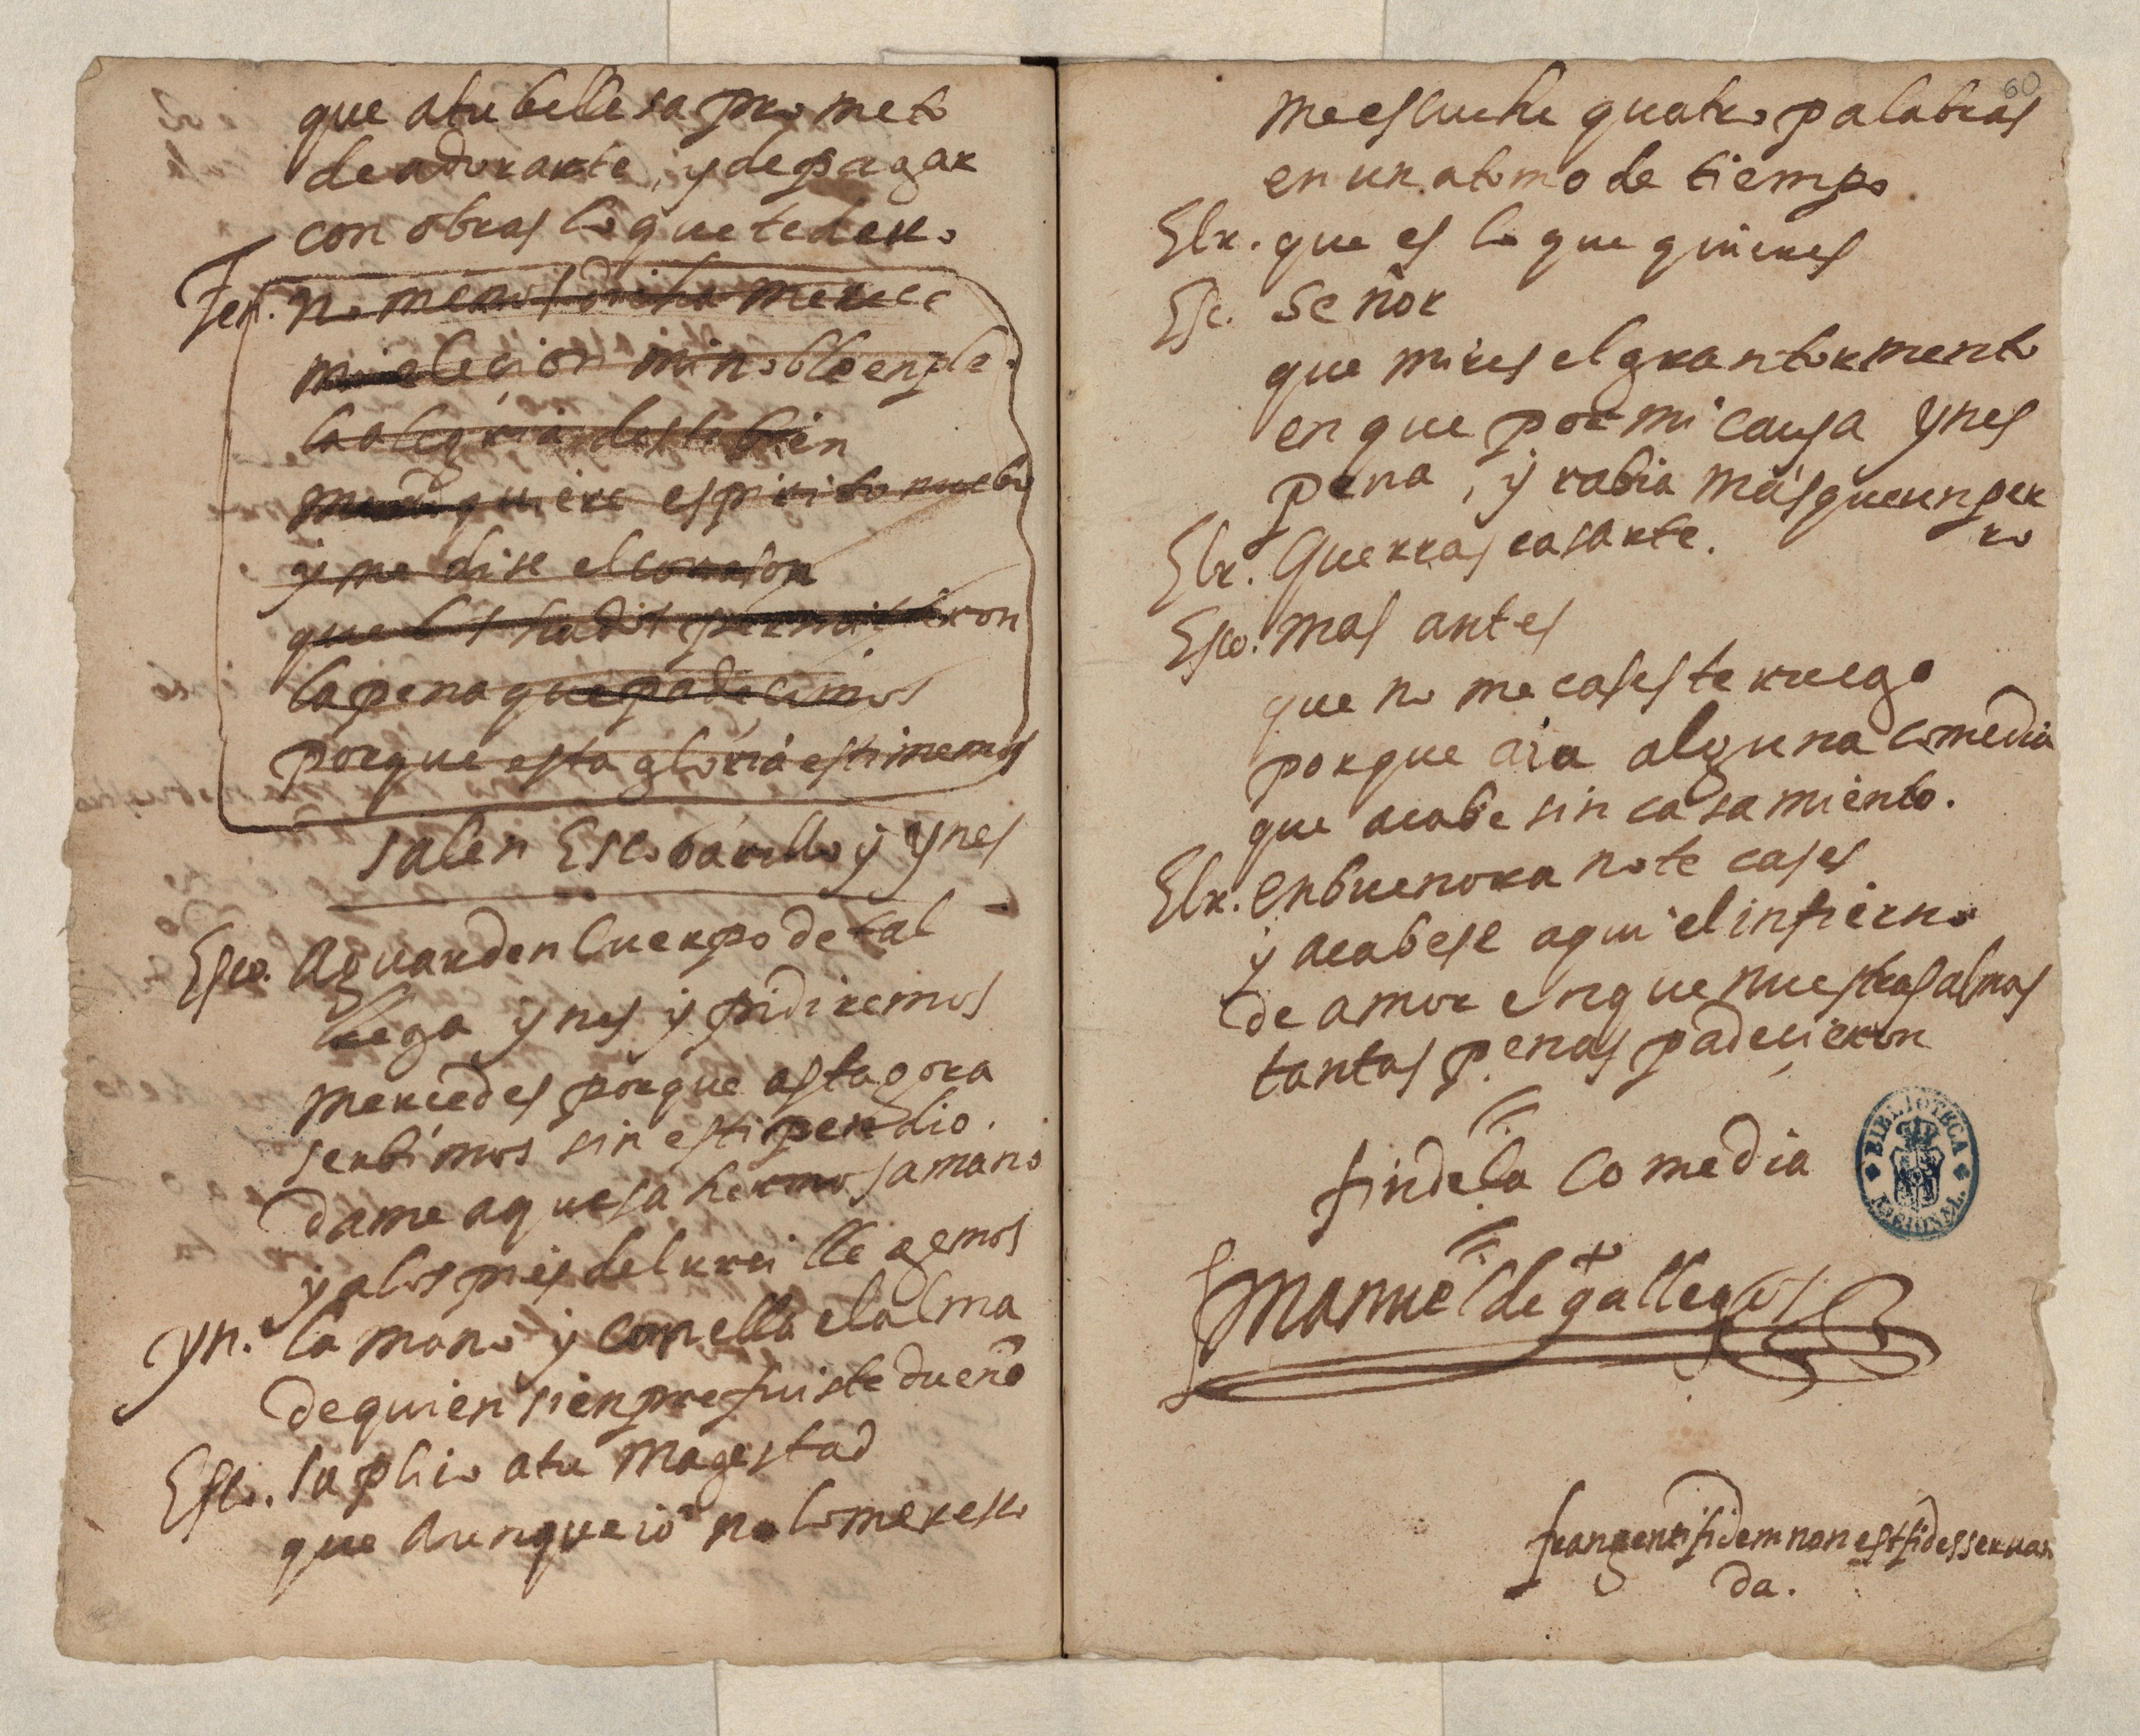 que atu bellesa prometo
de adorarte, y de pagar
con obras lo que te devo
Fen. no menos dicha merece
mi elecion mi noble enpleo
la alegria deste bien
quiere espirito nuebo
y me dise el corason
que los hados permitieron
la pena que padecimos
porque esta gloria estimemos
salen Escobarillo y ynes
Esco. Aguarden Cuerpo de tal
llega ynes y pidiremos
mercedes porque astagora
serbimos sin estipendio.
dame aquesa hermosa mano
y a los pies del rrei lle gemos
yn. la mano y con ella el alma
de quien sienpre fuiste dueño
Esco. suplico atu Magestad
que aunque io no lo meresco
60
me escuche quatro palabras
en un atomo de tiempo
Elr. que es lo que quieres
Esc. Señor
que mires el gran tormento
en que por mi causa ynes
pena, y rabia más que un per
ro
Elr. Querras casarte.
Esco. mas antes
que no me cases te ruego
porque aia alguna comedia
que acabe sin casamiento.
Elr. enbuenora no te cases
y acabese aqui el infierno
de amor en que nuestras almas
tantas penas padecieron
fin de la Comedia
Manuel de gallegos
frangenti fidem non est fides seruan
da.
BIBLIOTECA NACIONAL